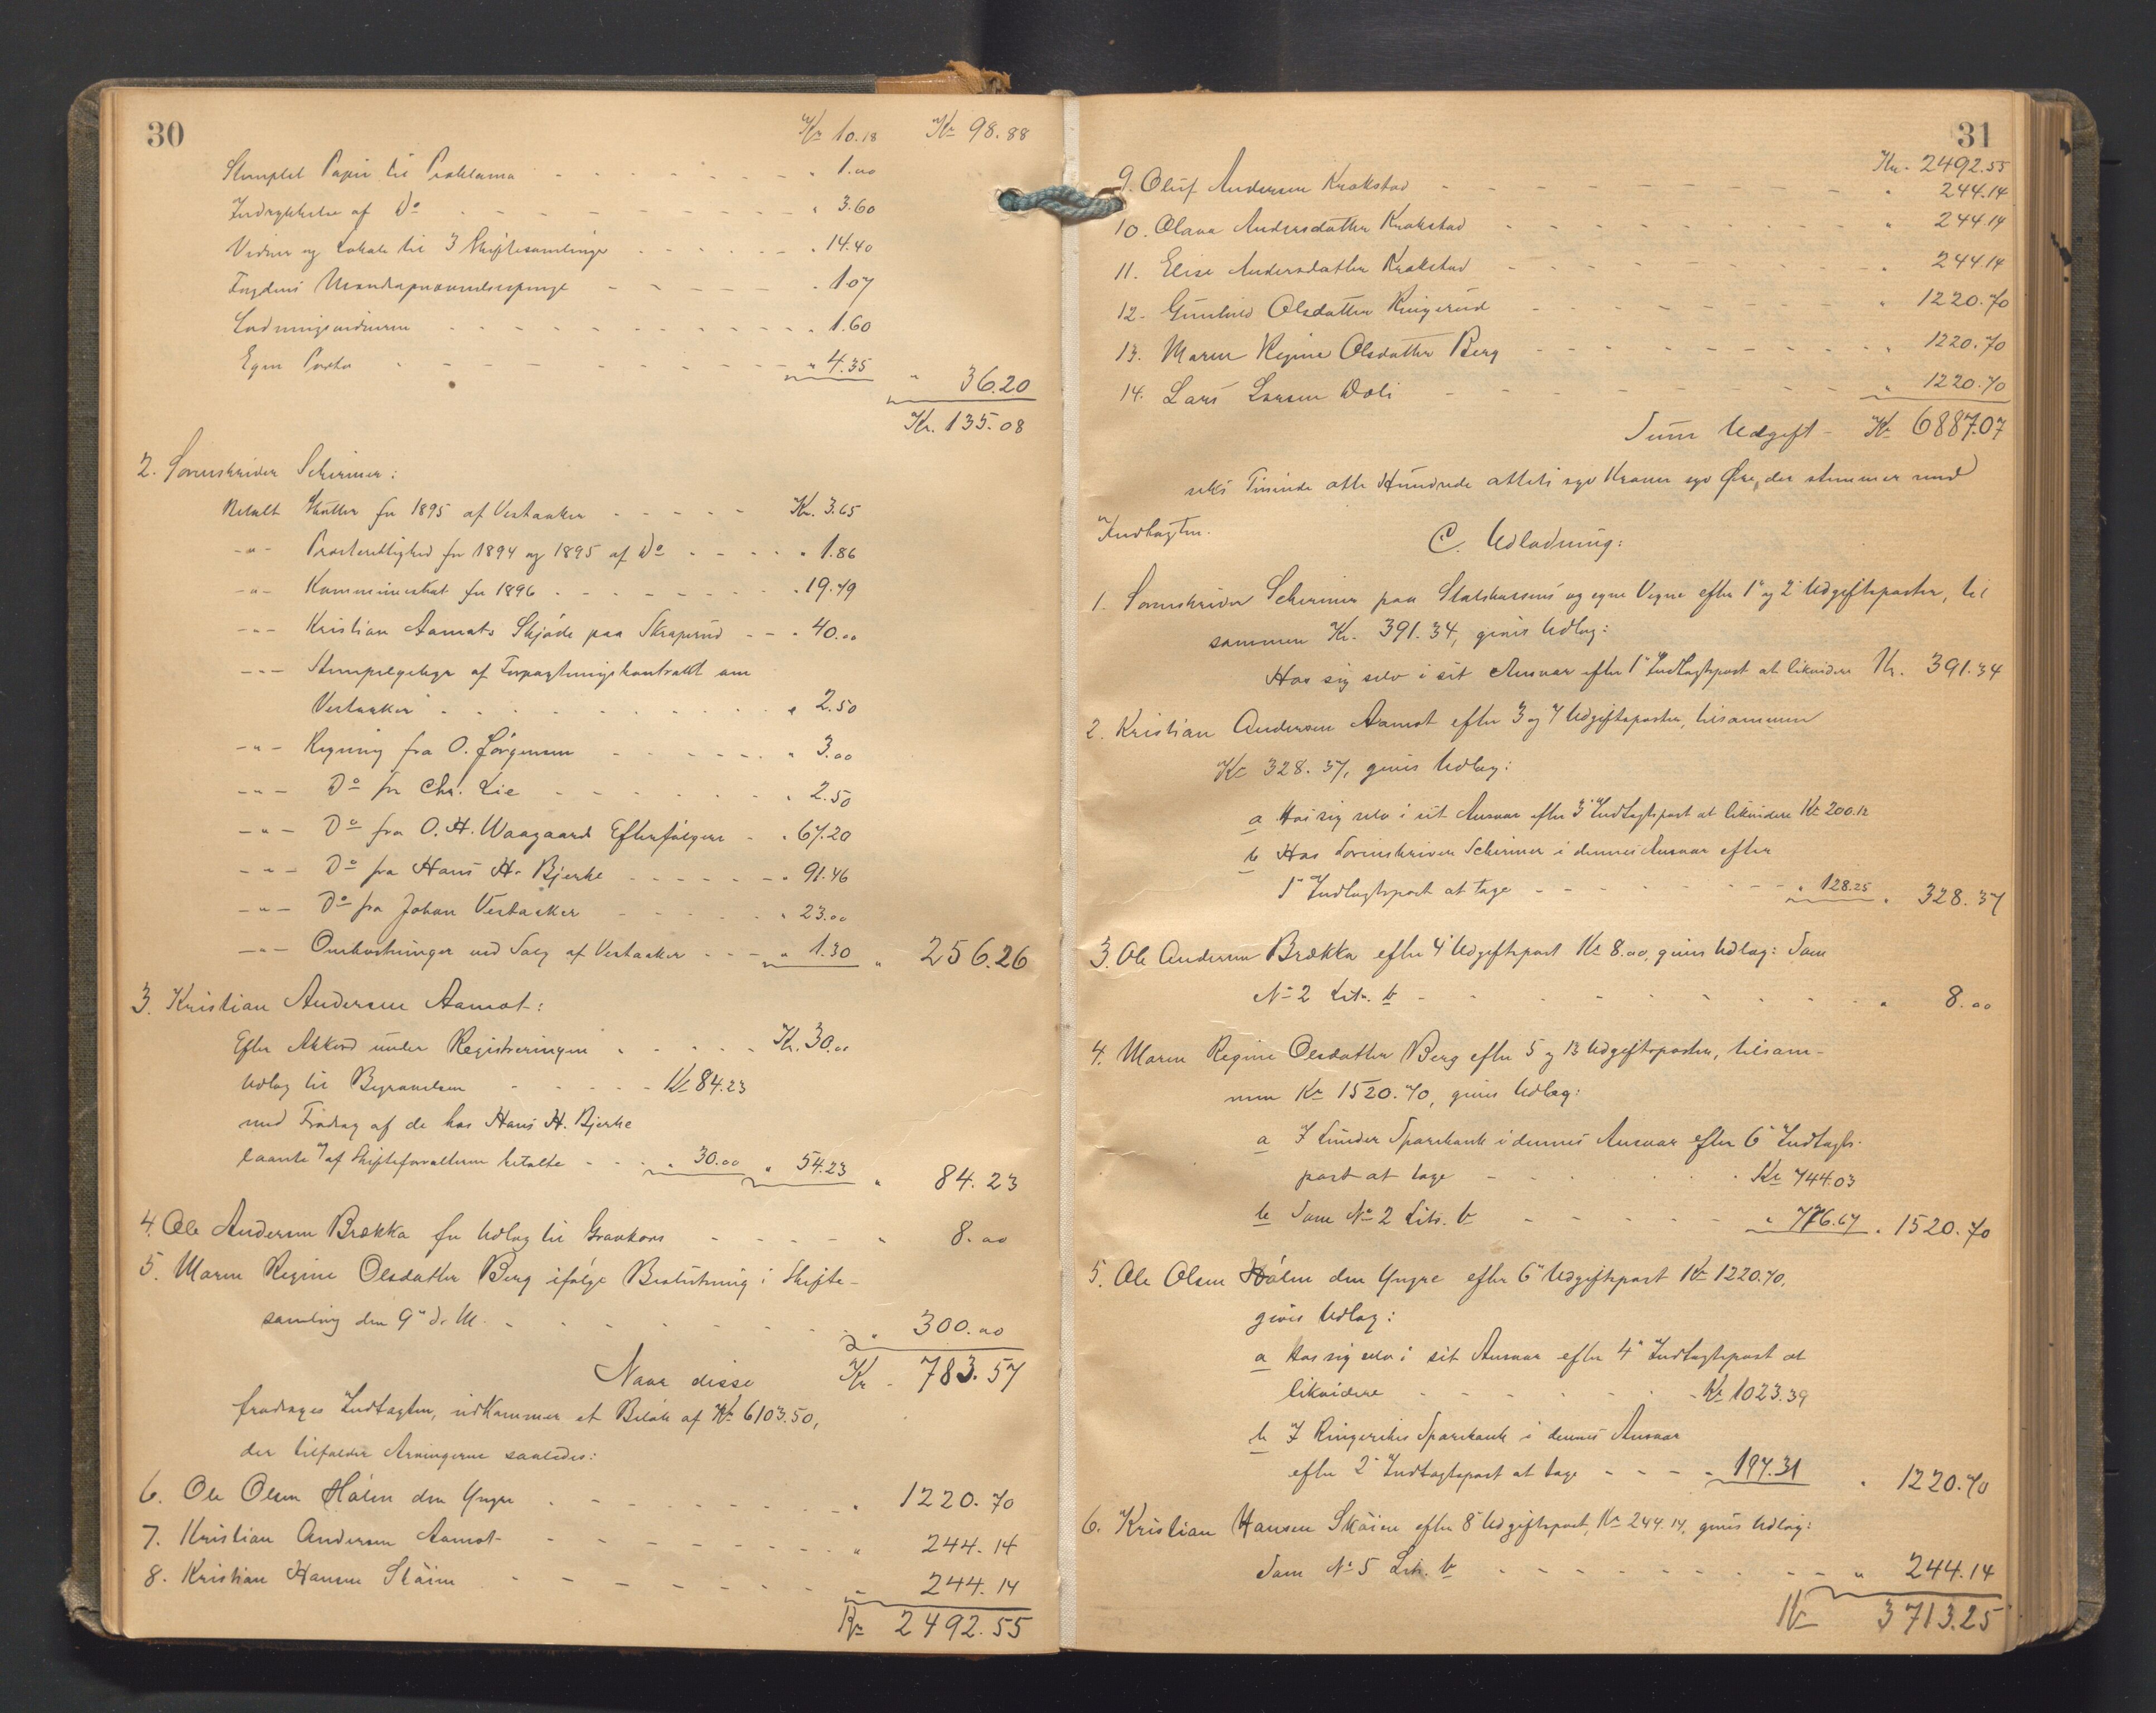 30
Kr 10.18 Kr 98.88
Stemplet Papir til Proklama - - - " 1.00
Indrykkelse af Do - - - " 3.60
Vidner og Lokale til 3 Skiftesamlinger - - - " 14.40
Fogdens - - - " 1.07
Ladningsvidnerne - - - " 1.60
Egen Porto - - - " 4.35 " 36.20
Kr. 135.08
2. Sorenskriver Schirmer:
Betalt Skatter for 1895 af Vestaaker - - - Kr. 3.65
-"- Presterettighed for 1894 og 1895 af Do - - - " 1.86
-"- Kommuneskat for 1896 - - - " 19.79
-"- Kristian Aamots Skjøde paa Skraperud - - - " 40.00
-"- Stempelgebyr af Forpagtningskontrakt om
Vestaaker - - - " 2.50
-"- Regning fra O. Jørgensen - - - " 3.00
-"- Do fra Chr. Lie - - - " 2.50
-"- Do fra O. H. Waagaard Efterfølgere - " 67.20
-"- Do fra Hans H. Bjerke - - - " 91.46
-"- Do fra Johan Vestaaker - - - " 23.00
-"- Omkostninger ved Salg af Vestaaker - - - " 1.30 " 256.26
3. Kristian Andersen Aamot:
Efter Akkord under Registreringen - - - Kr. 30.00
Udlæg til Begravelsen - - - Kr 84.23
med Fradrag af de hos Hans H. Bjerke
laante af Skifteforvalteren betalte - - - " 30.00 " 54.23 " 84.23
4. Ole Andersen Brækka for Udlæg til Gravkors - - - " 8.00
5. Maren Regine Olsdatter Berg ifølge Beslutning i Skifte-
samling den 9de d. M. - - - " 300.00
Naar disse Kr. 783.57
fradrages Indtægten, udkommer et Beløb af Kr 6103.50,
der tilfalder Arvingerne saaledes:
6. Ole Olsen Hólen den Yngre - - - " 1220.70
7. Kristian Andersen Aamot - - - " 244.14
8. Kristian Hansen Skóien - - - " 244.14
Kr 2492.55
31
Kr. 2492.55
9. Oluf Andersen Krakstad - - - " 244.14
10. Olava Andersdatter Krakstad - - - " 244.14
11. Elise Andersdatter Krakstad - - - " 244.14
12. Gunhild Olsdatter Ringerud - - - " 1220.70
13. Maren Regine Olsdatter Berg - - - " 1220.70
14. Lars Larsen Doli - - - " 1220.70
Sum Udgift - Kr 6887.07
seks Tusinde otte Hundrede otteti syv Kroner syv Øre, der stemmer med
Indtægten.
C. Udlodning:
1. Sorenskriver Schirmer paa Statskassens og egne Vegne efter 1" og 2" Udgiftsposter, til
sammen Kr. 391.34, givis Udlæg:
Hos sig selv i sit Ansvar efter 1" Indtægtspost at likvidere Kr. 391.34
2. Kristian Andersen Aamot efter 3 og 7 Udgiftsposter, tilsammen
Kr 328.37, givis Udlæg:
a Hos sig selv i sit Ansvar efter 3" Indtægtspost at likvidere Kr 200.12
b Hos Sorenskriver Schirmer i dennes Ansvar efter
1" Indtægtspost at tage - - - " 128.25 " 328.37
3. Ole Andersen Brækka efter 4" Udgiftspost Kr 8.00, givis Udlæg: Som
No 2 Litr. b - - - " 8.00
4. Maren Regine Olsdatter Berg efter 5 og 13 Udgiftsposter, tilsam-
men Kr 1520.70, givis Udlæg:
a I Lunder Sparebank i dennes Ansvar efter 6" Indtægts-
post at tage - - - Kr 744.03
b Som No 2 Litr. b - - - " 776.67 " 1520.70
5. Ole Olsen Hólen den Yngre efter 6" Udgiftspost Kr 1220.70,
givis Udlæg:
a Hos sig selv i sit Ansvar efter 4" Indtægtspost at
likvidere - - - Kr 1023.39
b I Ringerikes Sparebank i dennes Ansvar
efter 2" Indtægtspost at tage - - - " 197.31 " 1220.70
6. Kristian Hansen Skóien efter 8" Udgiftspost, Kr 244.14, givis Udlæg:
Som No 5 Litr. b - - - " 244.14
Kr 3713.25